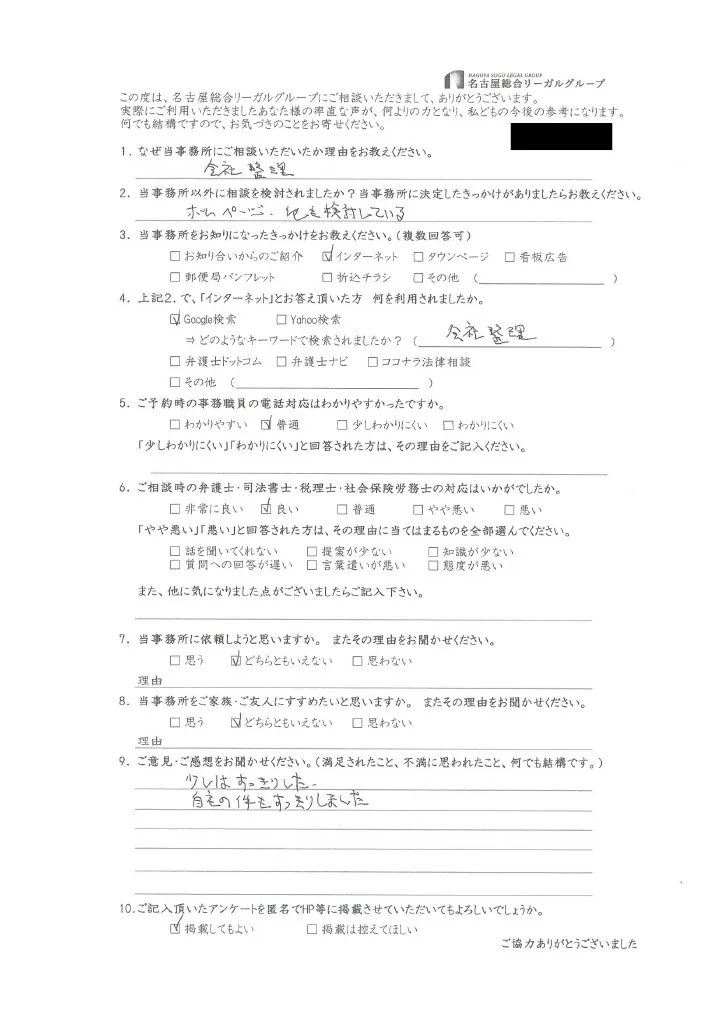 NAGOYA SOGO LEGAL GROUP
名古屋総合リーガルグループ
この度は、名古屋総合リーガルグループにご相談いただきまして、ありがとうございます。
実際にご利用いただきましたあなた様の率直な声が、何よりの力となり、私どもの今後の参考になります。
何でも結構ですので、お気づきのことをお寄せください。
1. なぜ当事務所にご相談いただいたか理由をお教えください。
会社整理
2. 当事務所以外に相談を検討されましたか?当事務所に決定したきっかけがありましたらお教えください。
ホームページ. 他も検討している
3. 当事務所をお知りになったきっかけをお教えください。(複数回答可)
□お知り合いからのご紹介 ☑インターネット □タウンページ □看板広告
□郵便局パンフレット □折込チラシ □その他 ( )
4. 上記2.で、「インターネット」とお答え頂いた方 何を利用されましたか。
☑Google検索 □Yahoo検索
⇒どのようなキーワードで検索されましたか? ( 会社整理 )
□弁護士ドットコム □弁護士ナビ □ココナラ法律相談
□その他 ( )
5. ご予約時の事務職員の電話対応はわかりやすかったですか。
□わかりやすい ☑普通 □少しわかりにくい □わかりにくい
「少しわかりにくい」「わかりにくい」と回答された方は、その理由をご記入ください。
6. ご相談時の弁護士・司法書士・税理士・社会保険労務士の対応はいかがでしたか。
□非常に良い ☑良い □普通 □やや悪い □悪い
「やや悪い」「悪い」と回答された方は、その理由に当てはまるものを全部選んでください。
□話を聞いてくれない □提案が少ない □知識が少ない
□質問への回答が遅い □言葉遣いが悪い □態度が悪い
また、他に気になりました点がございましたらご記入下さい。
7. 当事務所に依頼しようと思いますか。 またその理由をお聞かせください。
□思う ☑どちらともいえない □思わない
理由
8. 当事務所をご家族・ご友人にすすめたいと思いますか。 またその理由をお聞かせください。
□思う ☑どちらともいえない □思わない
理由
9. ご意見・ご感想をお聞かせください。(満足されたこと、不満に思われたこと、何でも結構です。)
少しはすっきりした.
自宅の件もすっきりしました
10.ご記入頂いたアンケートを匿名でHP等に掲載させていただいてもよろしいでしょうか。
☑掲載してもよい □掲載は控えてほしい
ご協力ありがとうございました